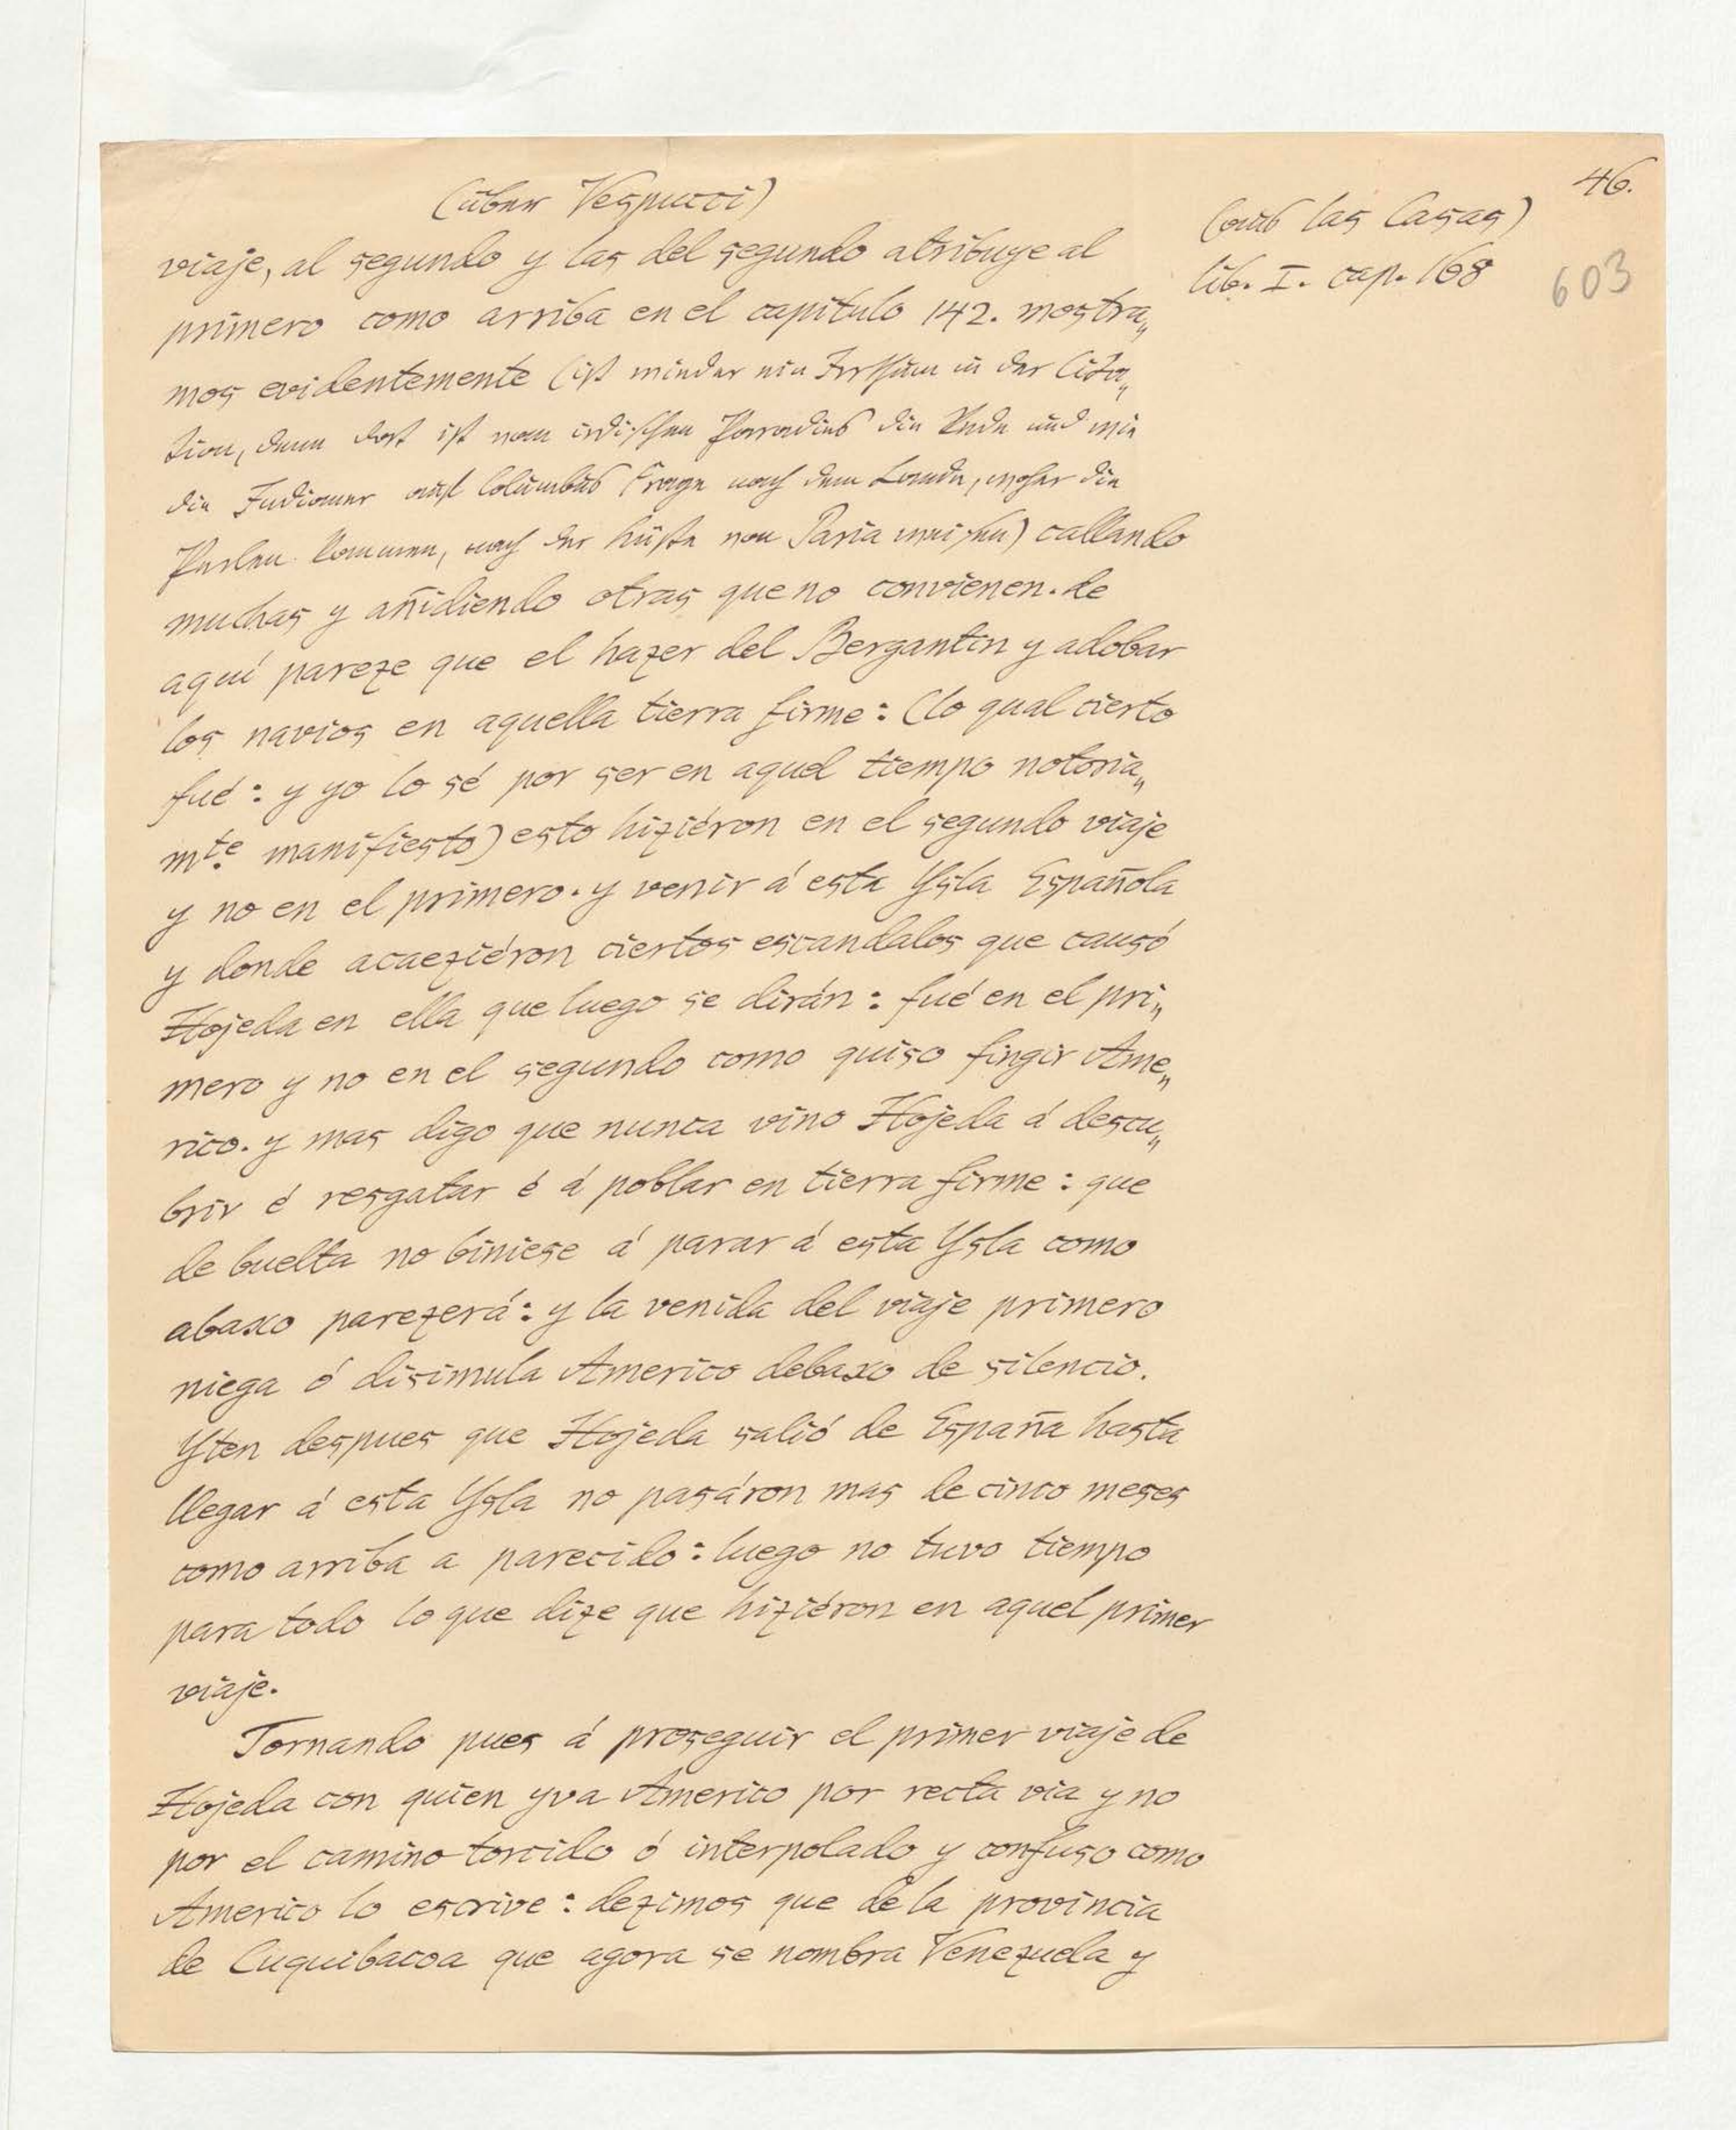 46.
(über Vespucci)
(aus las Casas)
lib. I. cap. 168
603
viaje, al segundo y las del segundo atribuye al
primero como arriba en el capitulo 142. mostra„
mos evidentemente (ist wieder ein Irrthum in der Cita„
tion, denn dort ist vom irdischen Paradies die Rede und wie
die Indianer auf Columbus Frage nach dem Lande, woher die
Perlen kommen, nach der Küste von Paria weisen) callando
muchas y añidiendo otras que no convienen. de
aquí pareze que el hazer del Bergantin y adobar
los navios en aquella tierra firme: (lo qual cierto
fué: y yo lo sé por ser en aquel tiempo notoria„
mte. manifiesto) esto hiziéron en el segundo viaje
y no en el primero. y venir á esta Ysla Española
y donde acaeziéron ciertos escandalos que causó
Hojeda en ella que luego se dirán: fué en el pri„
mero y no en el segundo como quiso fingir Ame„
rico. y mas digo que nunca vino Hojeda á descu„
brir é resgatar é á poblar en tierra firme: que
de buelta no biniese á parar á esta Ysla como
abaxo parezerá: y la venida del viaje primero
niega ó disimula Americo debaxo de silencio.
Yten despues que Hojeda salió de España hasta
llegar á esta Ysla no pasáron mas de cinco meses
como arriba a parecido: luego no tuvo tiempo
para todo lo que dize que hiziéron en aquel primer
viaje.
Tornando pues á proseguir el primer viaje de
Hojeda con quien yva Americo por recta via y no
por el camino torcido ó interpolado y confuso como
Americo lo escrive: dezimos que de la provincia
de Cuquibacoa que agora se nombra Venezuela y